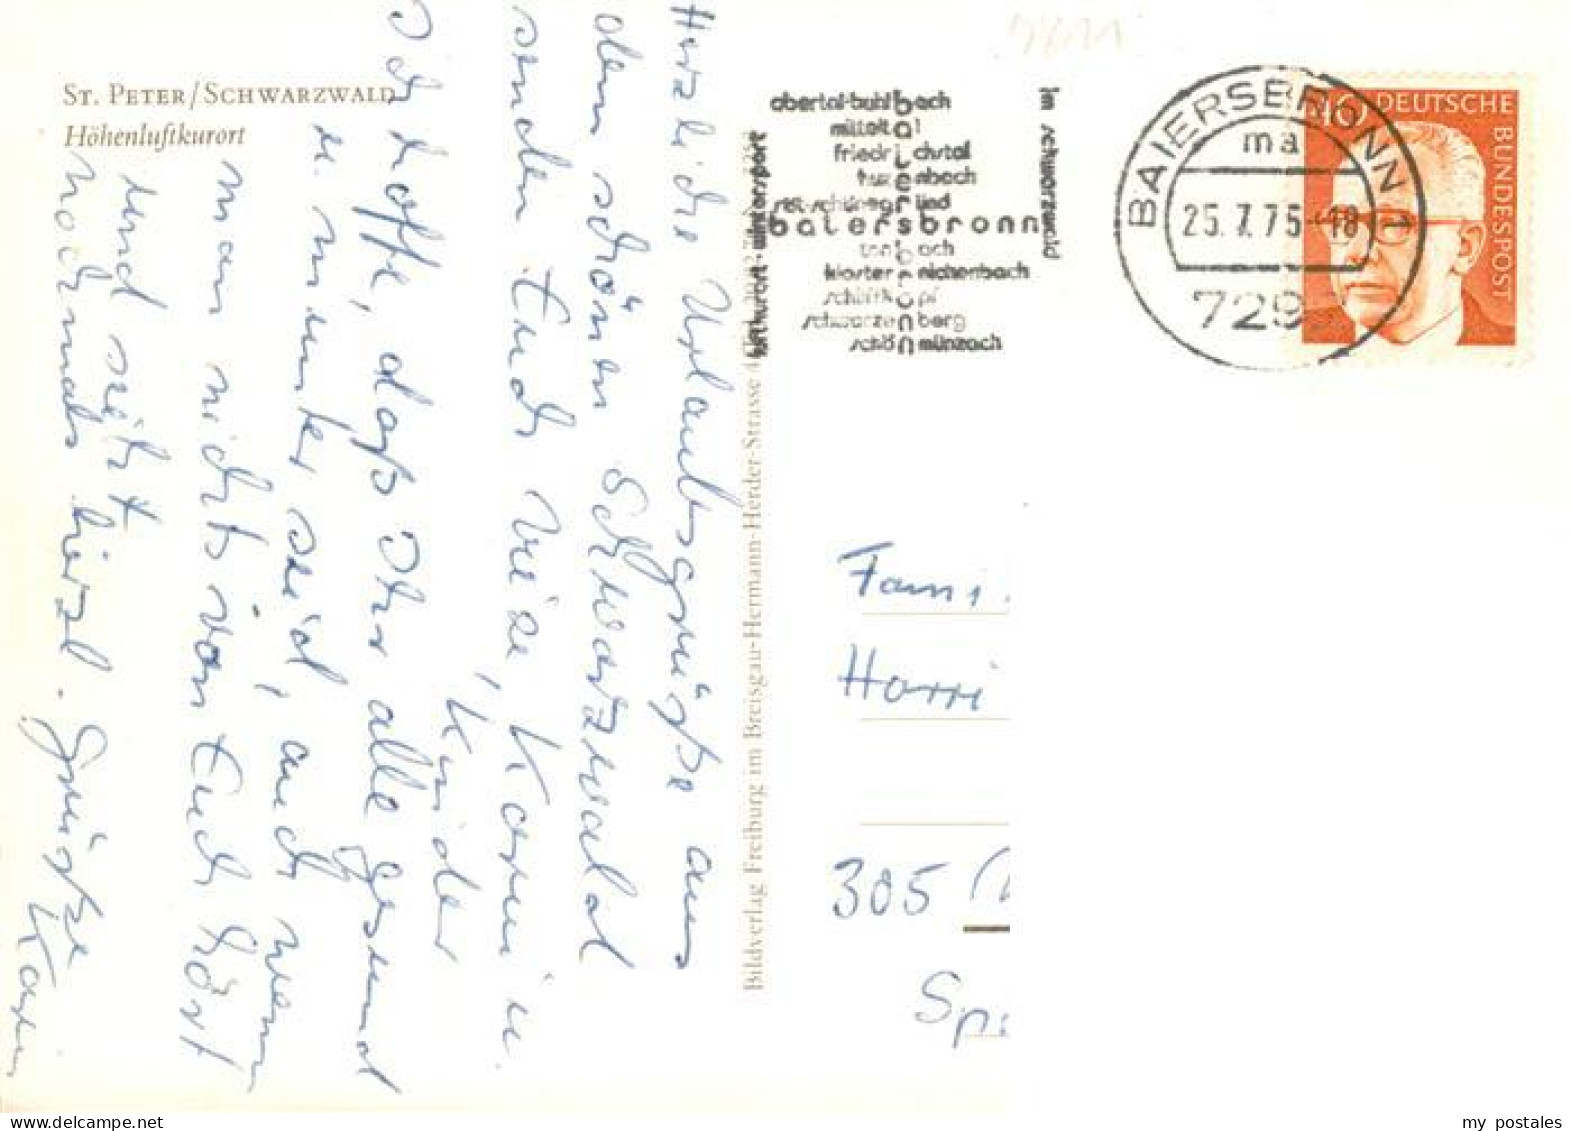 ST. PETER/SCHWARZWALD
Höhenluftkurort
Herzliche Urlaubsgrüße aus
dem schönen Schwarzwald
senden Euch Vize, Karin u.
Kinder
Ich hoffe, daß Ihr alle gesund
u. munter seid, auch wenn
man nichts von Euch hört
und seht
nochmals herzl. Grüße
Karin
Bildverlag Freiburg im Breisgau-Hermann-Herder-Strasse 4
obertal-buhlbach
mitteltal
friedrichstal
huzenbach
schönegründ
baiersbronn
tonbach
kloster reichenbach
schliffkopf
schwarzenberg
schönmünzach
luftkurort wintersport
im schwarzwald
BAIERSBRONN 1
ma
25.7.75-18
729
40 DEUTSCHE BUNDESPOST
Fami
Harri
305
Sp
my postales